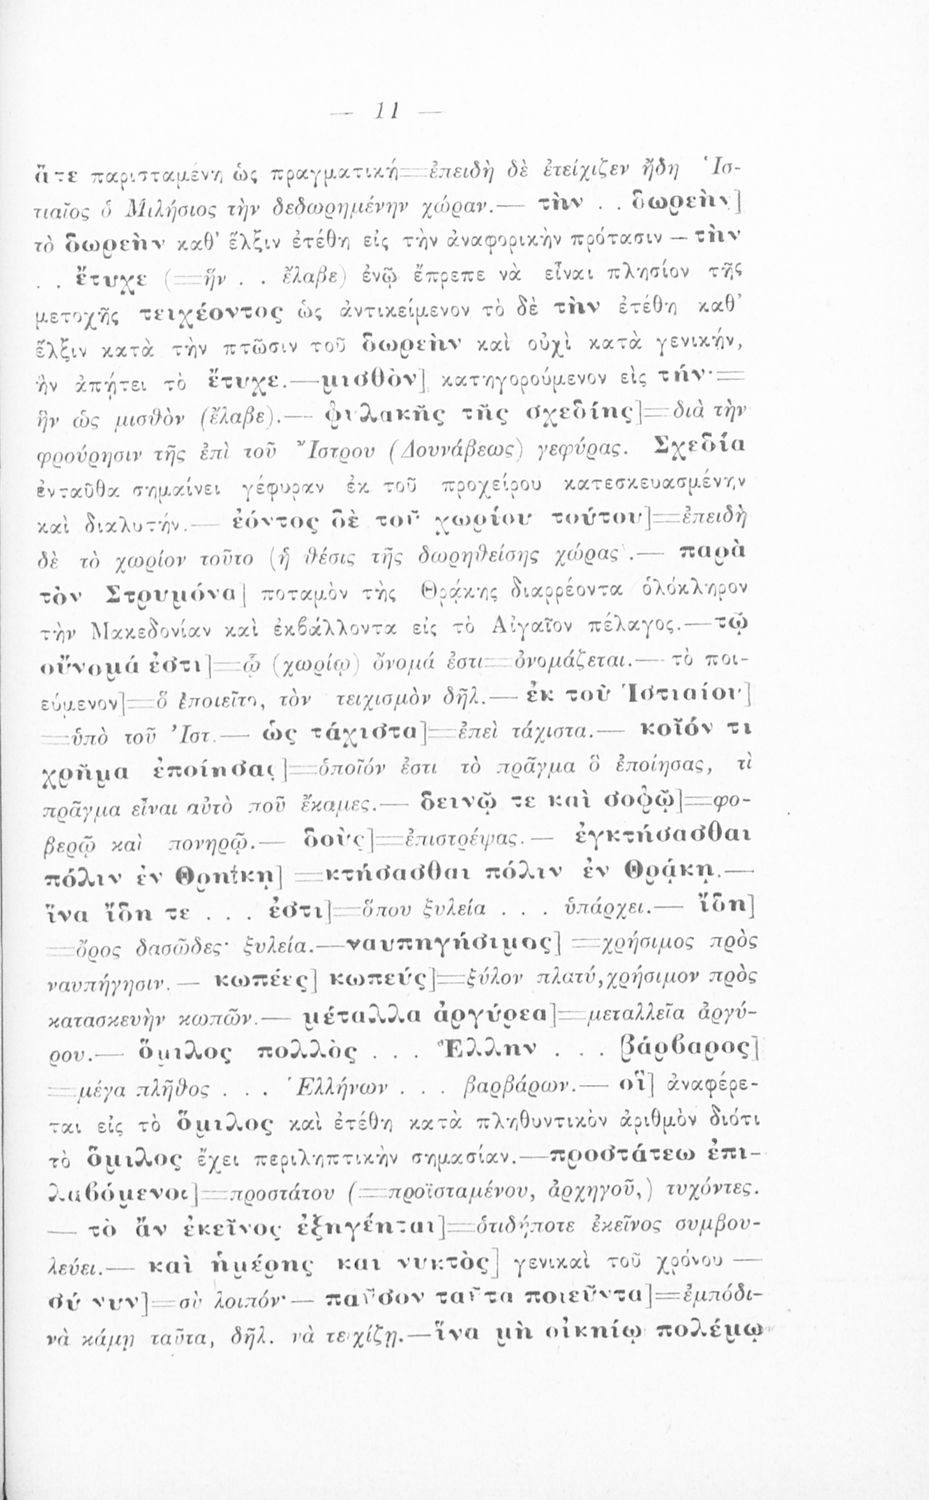 — 11 —
ἅτε παρισταμένη ὡς πραγματική=ἐπειδὴ δὲ ἐτείχιζεν ἤδη Ἱσ-
τιαῖος ὁ Μιλήσιος τὴν δεδωρημένην χώραν.— τὴν . . δωρεὴν]
τὸ δωρεὴν καθ' ἕλξιν ἐτέθη εἰς τὴν ἀναφορικὴν πρότασιν — τὴν
. . ἔτυχε (=ἣν . . ἔλαβε) ἐνῷ ἔπρεπε νὰ εἶναι πλησίον τῆς
μετοχῆς τειχέοντος ὡς ἀντικείμενον τὸ δὲ τὴν ἐτέθη καθ'
ἕλξιν κατὰ τὴν πτῶσιν τοῦ δωρεὴν καὶ οὐχὶ κατὰ γενικήν,
ἣν ἀπῄτει τὸ ἔτυχε.—μισθὸν] κατηγορούμενον εἰς τήν·=
ἣν ὡς μισθὸν (ἔλαβε).— φυλακῆς τῆς σχεδίης]=διὰ τὴν
φρούρησιν τῆς ἐπὶ τοῦ Ἴστρου (Δουνάβεως) γεφύρας. Σχεδία
ἐνταῦθα σημαίνει γέφυραν ἐκ τοῦ προχείρου κατεσκευασμένην
καὶ διαλυτήν.— ἐόντος δὲ τοῦ χωρίου τούτου]=ἐπειδὴ
δὲ τὸ χωρίον τοῦτο (ἡ θέσις τῆς δωρηθείσης χώρας).— παρὰ
τὸν Στρυμόνα] ποταμὸν τῆς Θράκης διαρρέοντα ὁλόκληρον
τὴν Μακεδονίαν καὶ ἐκβάλλοντα εἰς τὸ Αἰγαῖον πέλαγος.—τῷ
οὔνομά ἐστι]=ᾧ (χωρίῳ) ὄνομά ἐστι=ὀνομάζεται.— τὸ ποι-
εύμενον]=ὃ ἐποιεῖτο, τὸν τειχισμὸν δῆλ.— ἐκ τοῦ Ἱστιαίου]
=ὑπὸ τοῦ Ἱστ.— ὡς τάχιστα]=ἐπεὶ τάχιστα.— κοῖόν τι
χρῆμα ἐποίησας]=ὁποῖόν ἐστι τὸ πρᾶγμα ὃ ἐποίησας, τὶ
πρᾶγμα εἶναι αὐτὸ ποῦ ἔκαμες.— δεινῷ τε καὶ σοφῷ]=φο-
βερῷ καὶ πονηρῷ.— δοὺς]=ἐπιστρέψας.— ἐγκτήσασθαι
πόλιν ἐν Θρηΐκῃ] =κτήσασθαι πόλιν ἐν Θράκῃ.—
ἵνα ἴδη τε . . . ἐστι]=ὅπου ξυλεία . . . ὑπάρχει.— ἴδη]
=ὄρος δασῶδες· ξυλεία.—ναυπηγήσιμος] =χρήσιμος πρὸς
ναυπήγησιν.— κωπέες] κωπεύς]=ξύλον πλατύ,χρήσιμον πρὸς
κατασκευὴν κωπῶν.— μέταλλα ἀργύρεα]=μεταλλεῖα ἀργύ-
ρου.— ὅμιλος πολλὸς . . . Ἕλλην . . . βάρβαρος]
=μέγα πλῆθος . . . Ἑλλήνων . . . βαρβάρων.— οἳ] ἀναφέρε-
ται εἰς τὸ ὅμιλος καὶ ἐτέθη κατὰ πληθυντικὸν ἀριθμὸν διότι
τὸ ὅμιλος ἔχει περιληπτικὴν σημασίαν.—προστάτεω ἐπι-
λαβόμενοι]=προστάτου (=προϊσταμένου, ἀρχηγοῦ,) τυχόντες.
— τὸ ἂν ἐκεῖνος ἐξηγέηται]=ὁτιδήποτε ἐκεῖνος συμβου-
λεύει.— καὶ ἡμέρης και νυκτὸς] γενικαὶ τοῦ χρόνου —
σύ νυν]=σὺ λοιπόν·— παῦσον ταῦτα ποιεῦντα]=ἐμπόδι-
νὰ κάμῃ ταῦτα, δῆλ. νὰ τειχίζῃ.—ἵνα μὴ οἰκηίῳ πολέμῳ